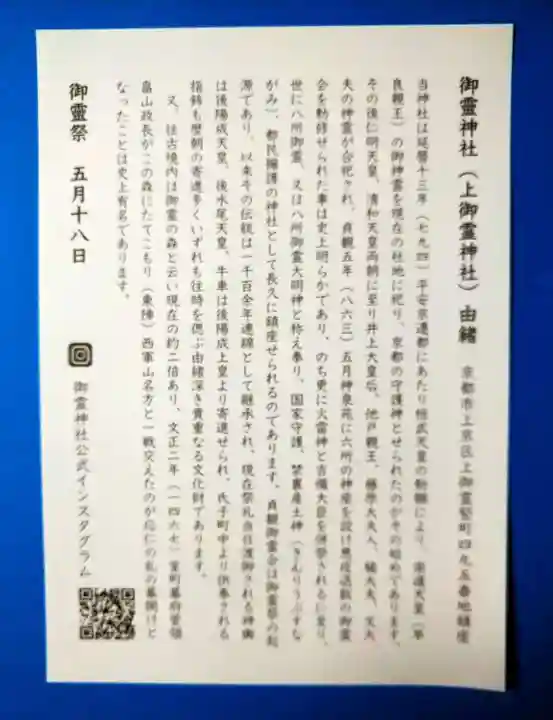 御靈神社(上御靈神社)由緒
京都市上京区上御霊竪町四九五番地鎮座
当神社は延暦十三年(七九四)平安京遷都にあたり桓武天皇の勅願により、崇道天皇(早
良親王)の御神霊を現在の社地に祀り、京都の守護神とせられたのがその始めであります。
その後仁明天皇、清和天皇両朝に至り井上大皇后、他戸親王、藤原大夫人、橘大夫、文大
夫の神霊が合祀され、貞観五年(八六三)五月神泉苑に六所の神座を設け悪疫退散の御霊
会を勅修せられた事は史上明らかであり、のち更に火雷神と吉備大臣を併祭されるに至り、
世に八所御霊、又は八所御霊大明神と称え奉り、国家守護、禁裏産土神(きんりうぶすな
がみ)、都民擁護の神社として長久に鎮座せられるのであります。貞観御霊会は御霊祭の起
源であり、以来その伝統は一千百余年連綿として継承され、現在祭礼当日渡御される神輿
は後陽成天皇、後水尾天皇、牛車は後陽成上皇より寄進せられ、氏子町中より供奉される
指鉾も歴朝の寄進多くいずれも往時を偲ぶ由緒深き貴重なる文化財であります。
又、往古境内は御霊の森と云い現在の約二倍あり、文正二年(一四六七)室町幕府管領
畠山政長がこの森にたてこもり(東陣)西軍山名方と一戦交えたのが応仁の乱の幕開けと
なったことは史上有名であります。
御靈祭 五月十八日
御靈神社公式インスタグラム